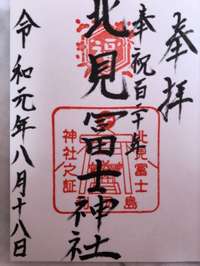 奉拝
奉祝百二十年
北見富士神社
令和元年八月十八日
北見富士
神社之証
島